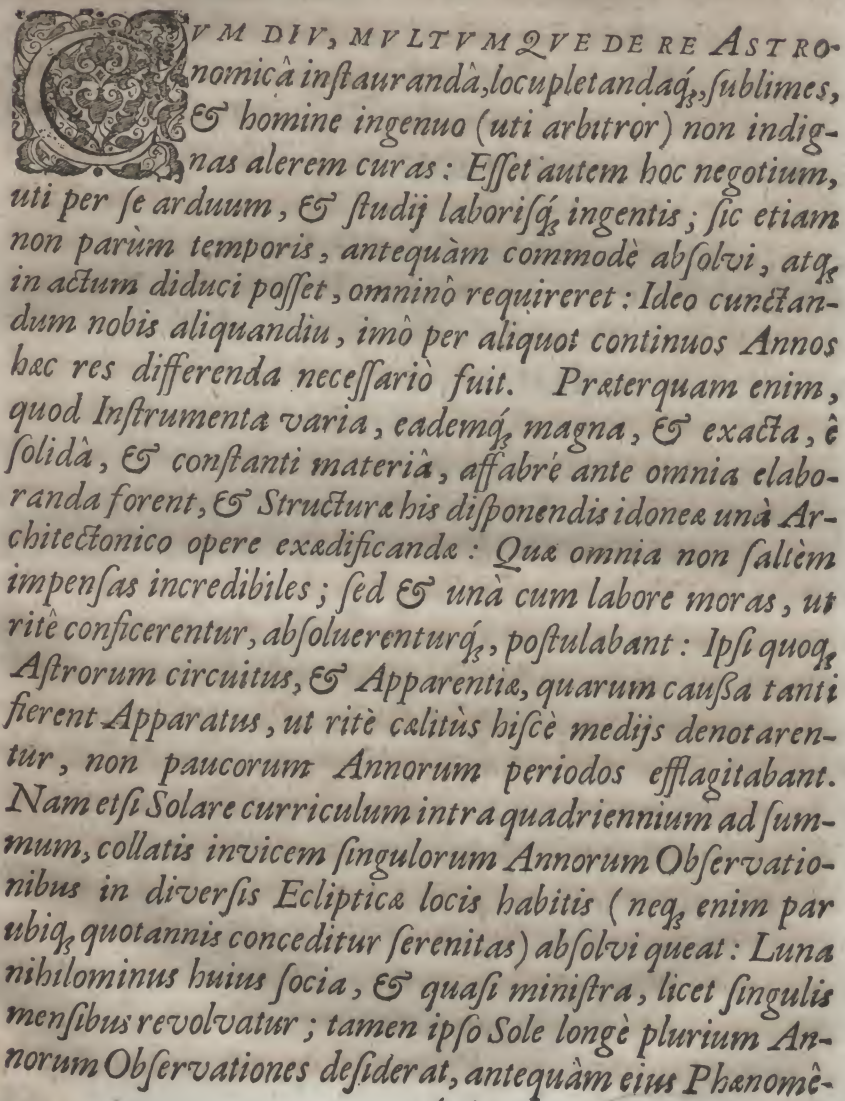 CVM DIV, MVLTVMQVE DE RE ASTRO-
nomicâ inſtaurandâ, locupletandaq́;, ſublimes,
& homine ingenuo (uti arbitror) non indig-
nas alerem curas: Eſſet autem hoc negotium,
uti per ſe arduum, & ſtudij laboriſq́; ingentis; ſic etiam
non parùm temporis, antequàm commodè abſolvi, atq;
in actum diduci poſſet, omninò requireret: Ideo cunctan-
dum nobis aliquandiu, imò per aliquot continuos Annos
hæc res differenda neceſſariò fuit. Præterquam enim,
quod Inſtrumenta varia, eademq́; magna, & exacta, è
ſolidâ, & conſtanti materiâ, affabrè ante omnia elabo-
randa forent, & Structuræ his diſponendis idoneæ unà Ar-
chitectonico opere exædificandæ: Quæ omnia non ſaltèm
impenſas incredibiles; ſed & unà cum labore moras, ut
ritè conficerentur, abſoluerenturq́;, poſtulabant: Ipſi quoq;
Aſtrorum circuitus, & Apparentiæ, quarum cauſſa tanti
fierent Apparatus, ut ritè cælitùs hiſcè medijs denotaren-
tur, non paucorum Annorum periodos efflagitabant.
Nam etſi Solare curriculum intra quadriennium ad ſum-
mum, collatis invicem ſingulorum Annorum Obſervatio-
nibus in diverſis Eclipticæ locis habitis (neq; enim par
ubiq; quotannis conceditur ſerenitas) abſolvi queat: Luna
nihilominus huius ſocia, & quaſi miniſtra, licet ſingulis
menſibus revolvatur; tamen ipſo Sole longè plurium An-
norum Obſervationes deſiderat, antequàm eius Phænomê-